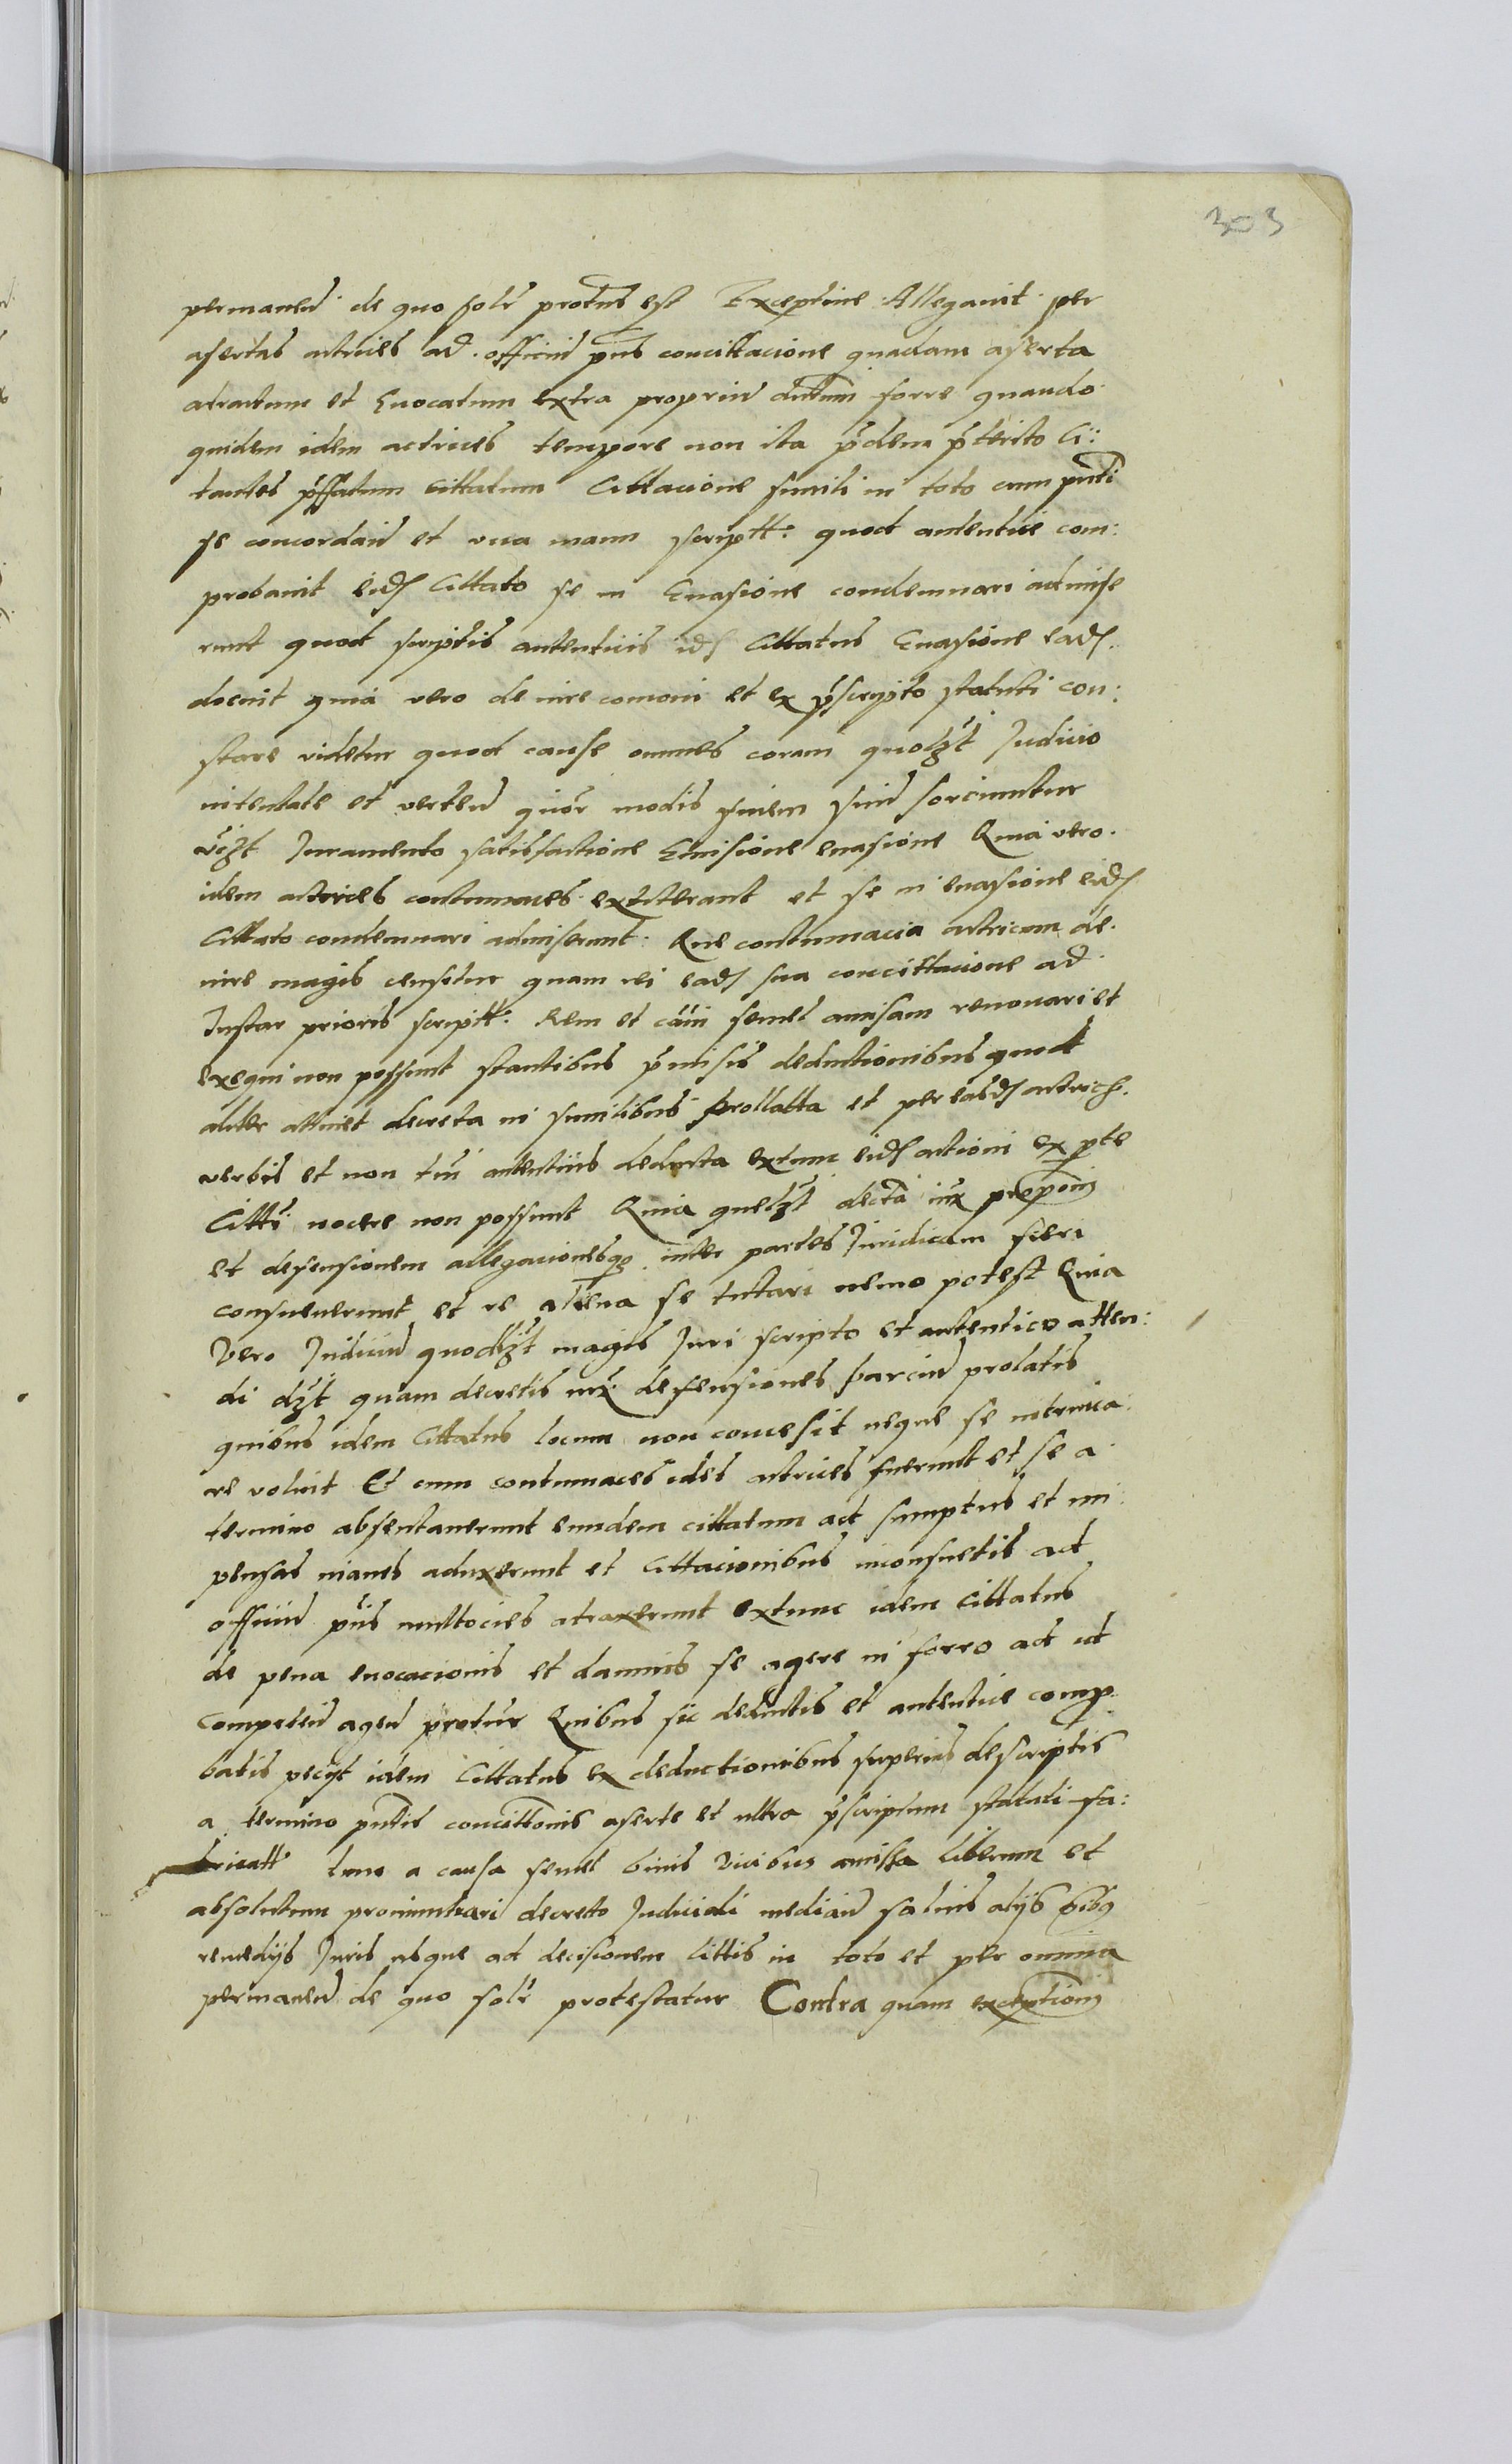 303
permanen de quo solr protus est Exceptive Allegavit per
asertas actrices ad officiu pns concittacione quadam aserta
atractum et Evocatum extra propriu dutum forre quando
quidem idem actrices tempore non ita pdem pterito Ci:
tantes pffatum cittatum Cittacione simili in toto cum pnti
se concordan et una manu scriptt: quod autentice com:
probavit eid Cittato se in Evasione condemnari admise
runt quod scriptis autenticis id Cittatus Evasione ead
docuit quia vero de iure comoni et ex pscripto statuti con:
stare videtur quod cause omnes coram quolzt Judicio
intentate et verten quor modis finem suu sorciuntur
vizt Juramento satisfactione Emisione evasione Quia vero
idem actrices contumaces extiterant et se in evasione eid
Cittato condemnari admiserunt Que contumacia actricum de
iure magis censetur quam rei ead sua concittacione ad
Instar prioris scriptt: Rem et cam semel amisam renovari et
exequi non possunt stantibus pmisis deductionibus quod
aliter attinet decreta in similibus prollatta et per easd actric
verbis et non tm autenticis deducta extunc eid actioni ex pte
Citti nocere non possunt Quia quelzt decta iux preponi
et defensionem allegacionesq inter partes Juridicam fieri
consueverunt et re aliena se tuttari nemo potest Quia
Vero Judiciu quodlzt magis Juri scripto et autentico atten:
di dzt quam decretis iux defensiones parciu prolatis
quibus idem Cittatus locum non concesit neque se intrica
re voluit Et cum contumaces ides actrices fuerunt et se a
termino absentaverunt eundem cittatum ad sumptus et im
pensas inanes aduxerunt et Cittacionibus inconsuetis ad
officiu pns multocies atraxerunt extunc idem Cittatus
de pena evocacionis et damnis se agere in forro ad id
competen agen protur Quibus sic deductis et autentice comp
batis pecyt idem Cittatus ex deductionibus superius descriptis
a termino pntis concittonis aserte et ultra pscriptum statuti fa:
bricatt tum a causa semel binis Vicibus amissa liberum et
absolutum pronuntiari decretto Judiciali median salvis alys oibus
remedys Juris usque ad decisionem littis in toto et per omnia
permanen de quo solr protestatur Contra quam exceptioni